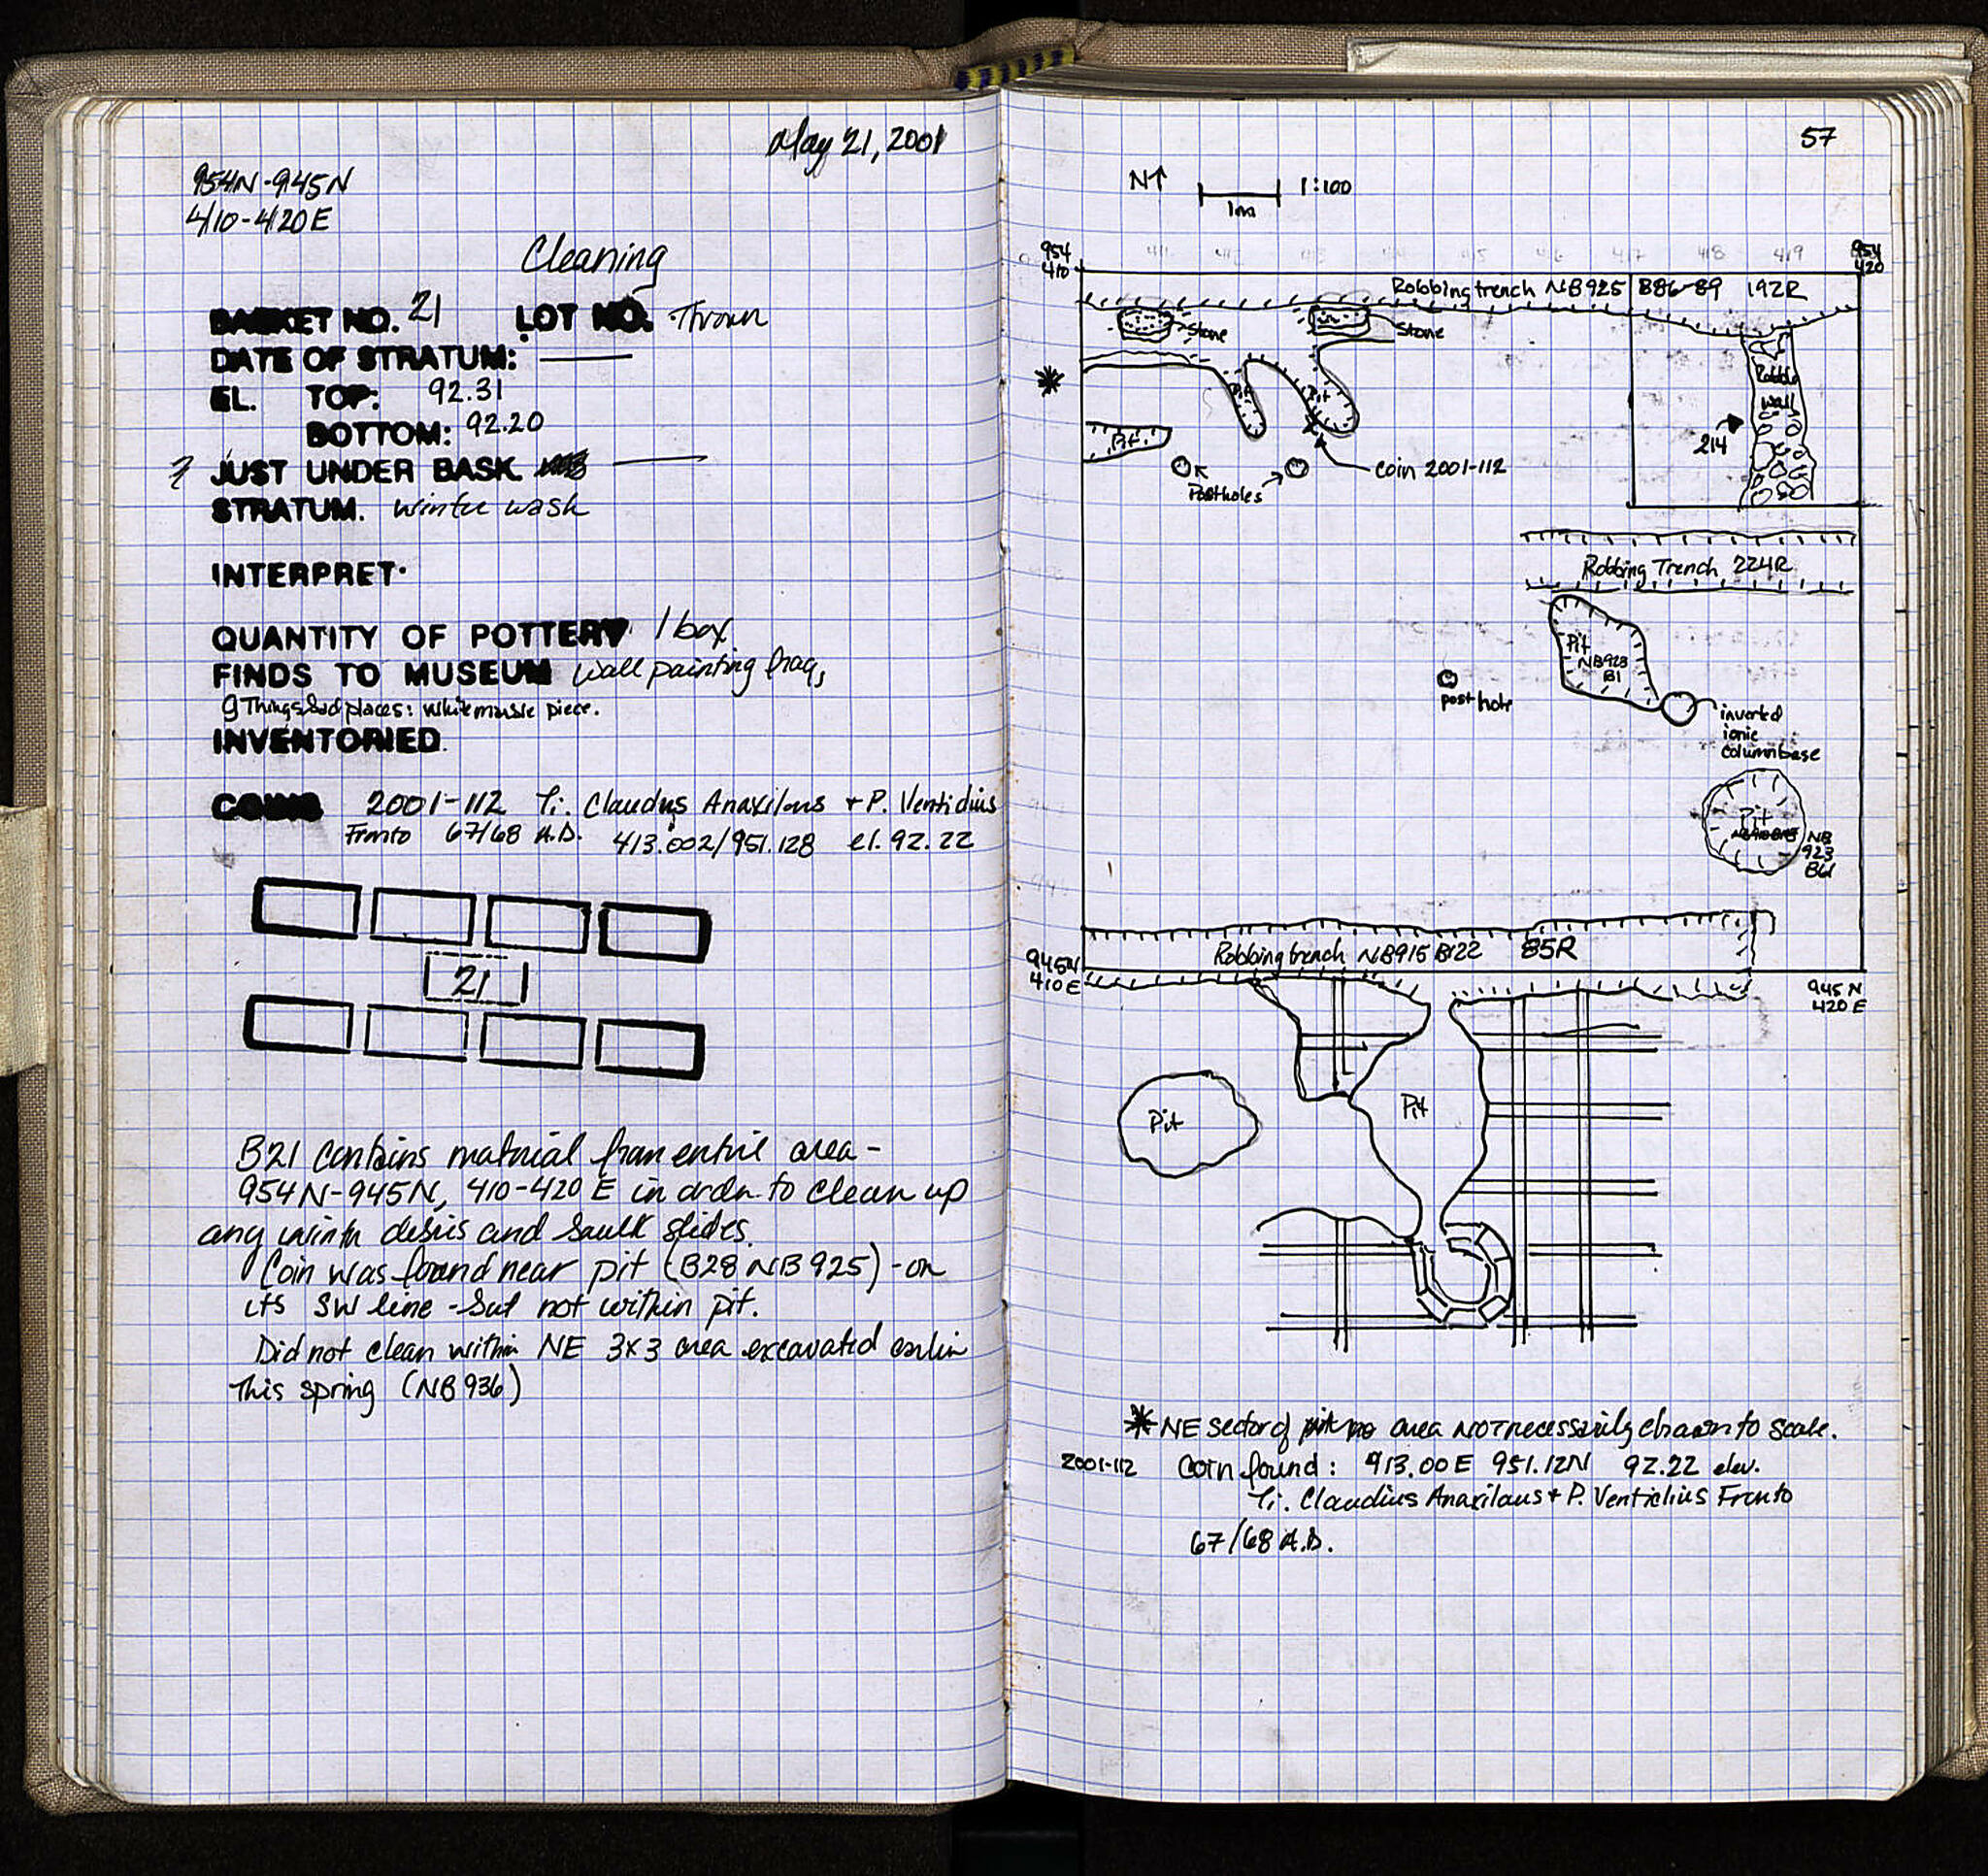 May 21, 2001
954N-945N
410-420E
Cleaning
BASKET NO. 21 LOT NO. Thrown
DATE OF STRATUM: ———
EL. TOP: 92.31
BOTTOM: 92.20
JUST UNDER BASK. ———
STRATUM. winter wash
INTERPRET.
QUANTITY OF POTTERY 1 box
FINDS TO MUSEUM wall painting frag,
9 Things Sad places: white marble piece.
INVENTORIED
COINS 2001-112 Ti. Claudius Anaxilaus + P. Ventidius
Fronto 67/68 A.D. 413.002/951.128 el. 92.22
21
B21 contains material from entire area -
954N-945N, 410-420 E in order to clean up
any winter debris and baulk slides.
Coin was found near pit (B28 NB925) - on
its SW line - but not within pit.
Did not clean within NE 3x3 area excavated earlier
this spring (NB936)
57
N↑ 1:100
1m
954
410
411 412 413 414 415 416 417 418 419
954
420
Robbing trench NB925 B86-89 192R
Stone
Stone
Rubble
wall
214
Pit
Pit
Pit
coin 2001-112
Postholes
Robbing Trench 224R
Pit
NB923
B1
post hole
inverted
ionic
column base
Pit
NB
923
B61
Robbing trench NB915 B122 85R
945N
410E
945 N
420 E
Pit
Pit
* NE sector of area NOT necessarily drawn to scale.
2001-112 Coin found: 913.00E 951.12N 92.22 elev.
Ti. Claudius Anaxilaus + P. Ventidius Fronto
67/68 A.D.